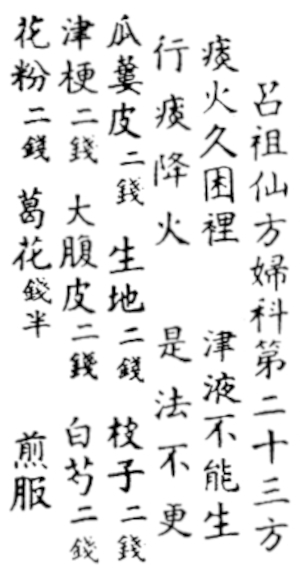 呂祖仙方婦科第二十三方
痰火久困裡 津液不能生
行痰降火 是法不更
瓜蔞皮二錢 生地二錢 枝子二錢
津梗二錢 大腹皮二錢 白芍二錢
花粉二錢 葛花錢半 煎服